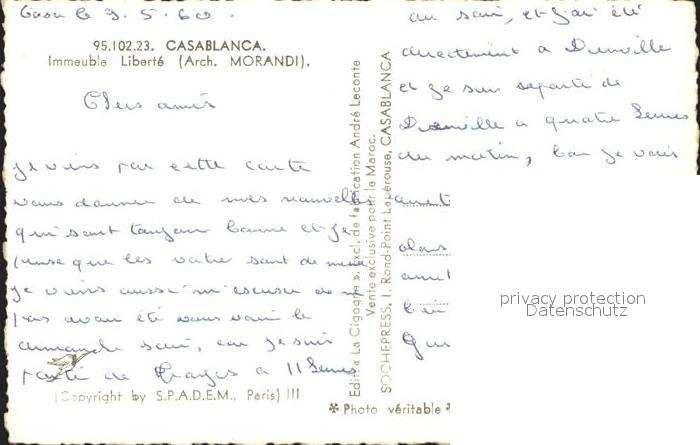 Casa le 9.5.60.
95.102.23. CASABLANCA.
Immeuble Liberté (Arch. MORANDI).
Chers amis
je viens par cette carte
vous donner de mes nouvelles
qui sont toujours bonne et je
pense que les votre sont de même
je viens aussi m'excuser de ne
pas avoir été vous voir le
dimanche soir, car je suis
parti de à 11 heures
(Copyright by S.P.A.D.E.M., Paris) III
Edit. « La Cigogne ». Excl. de fabrication André Leconte
Vente exclusive pour le Maroc.
SOCHEPRESS, 1. Rond-Point Lapérouse, CASABLANCA
✻ Photo véritable ✻
du soir, et j'ai été
directement à Dienville
et je suis reparti de
Dienville à quatre heures
du matin, car je vais
alors
privacy protection
Datenschutz